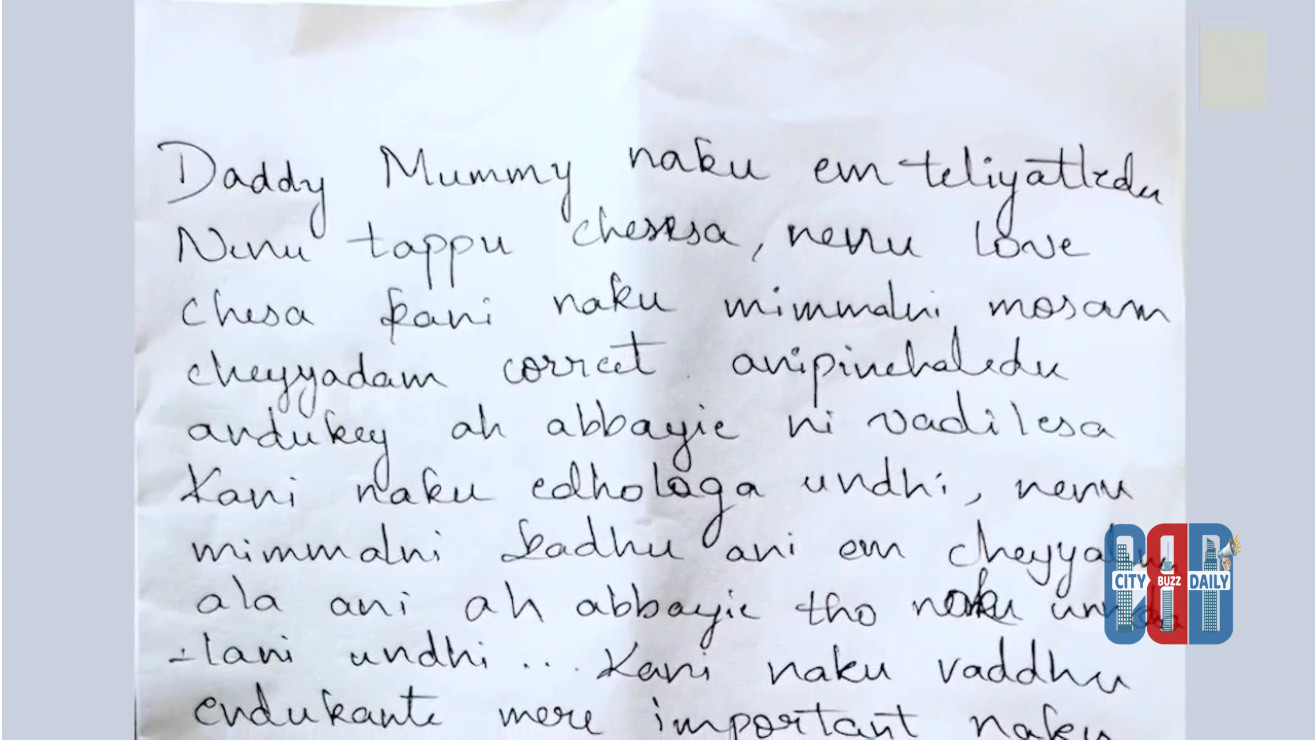 Daddy Mummy naku em teliyatledu
Nenu tappu chesesa, nenu love
chesa kani naku mimmalni mosam
cheyyadam correct anipinchaledu
andukey ah abbayie ni vadilesa
Kani naku edhologa undhi, nenu
mimmalni kadhu ani em
ala ani ah abbayie tho naku
-lani undhi ... Kani naku vaddhu
endukante mere important naku
CITY BUZZ DAILY